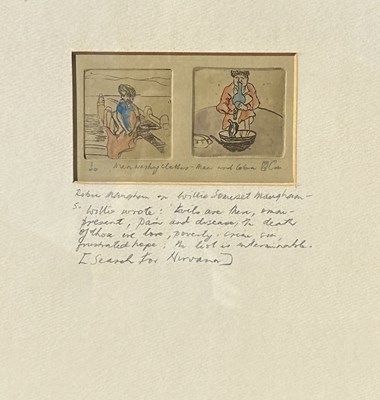 and
Robin Maugham on Willie Somerset Maugham –
Willie wrote: Evils are there, omni-
present, Pain and disease, the death
of those we love, poverty, crime,
frustrated hope: the list is interminable.
[Search for Nirvana]